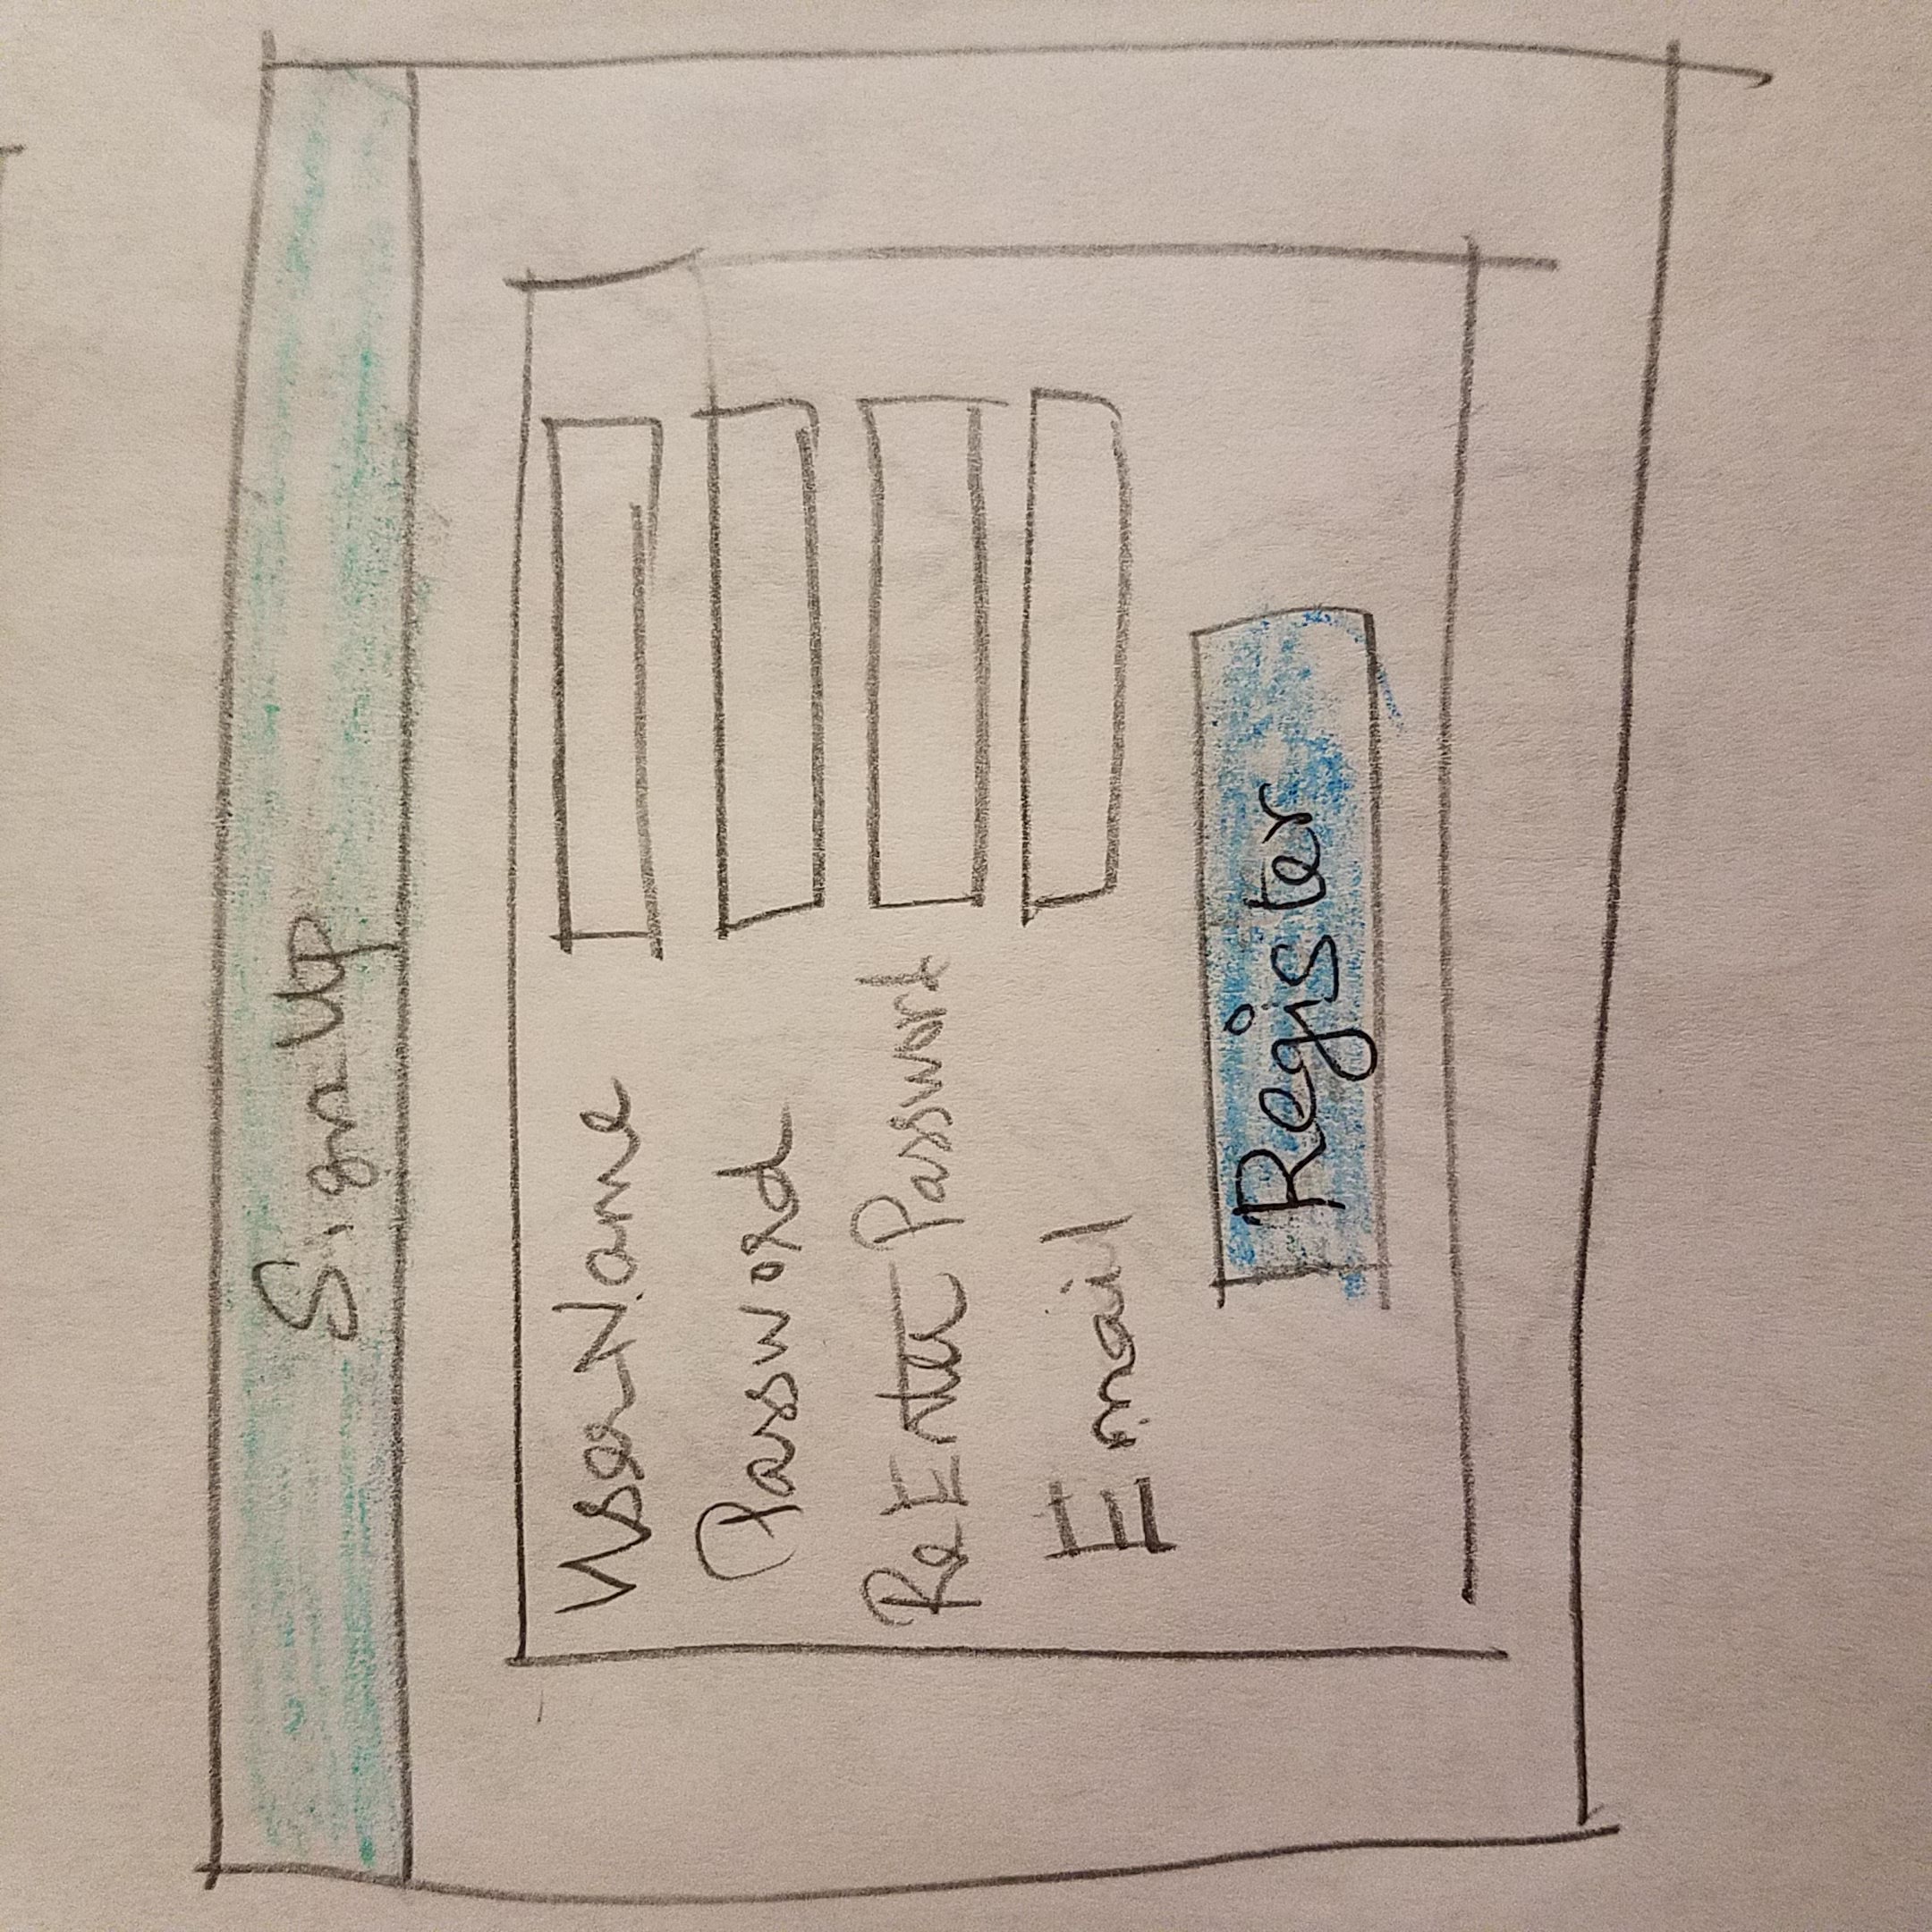 Sign Up
UserName
Password
Re Enter Password
Email
Register